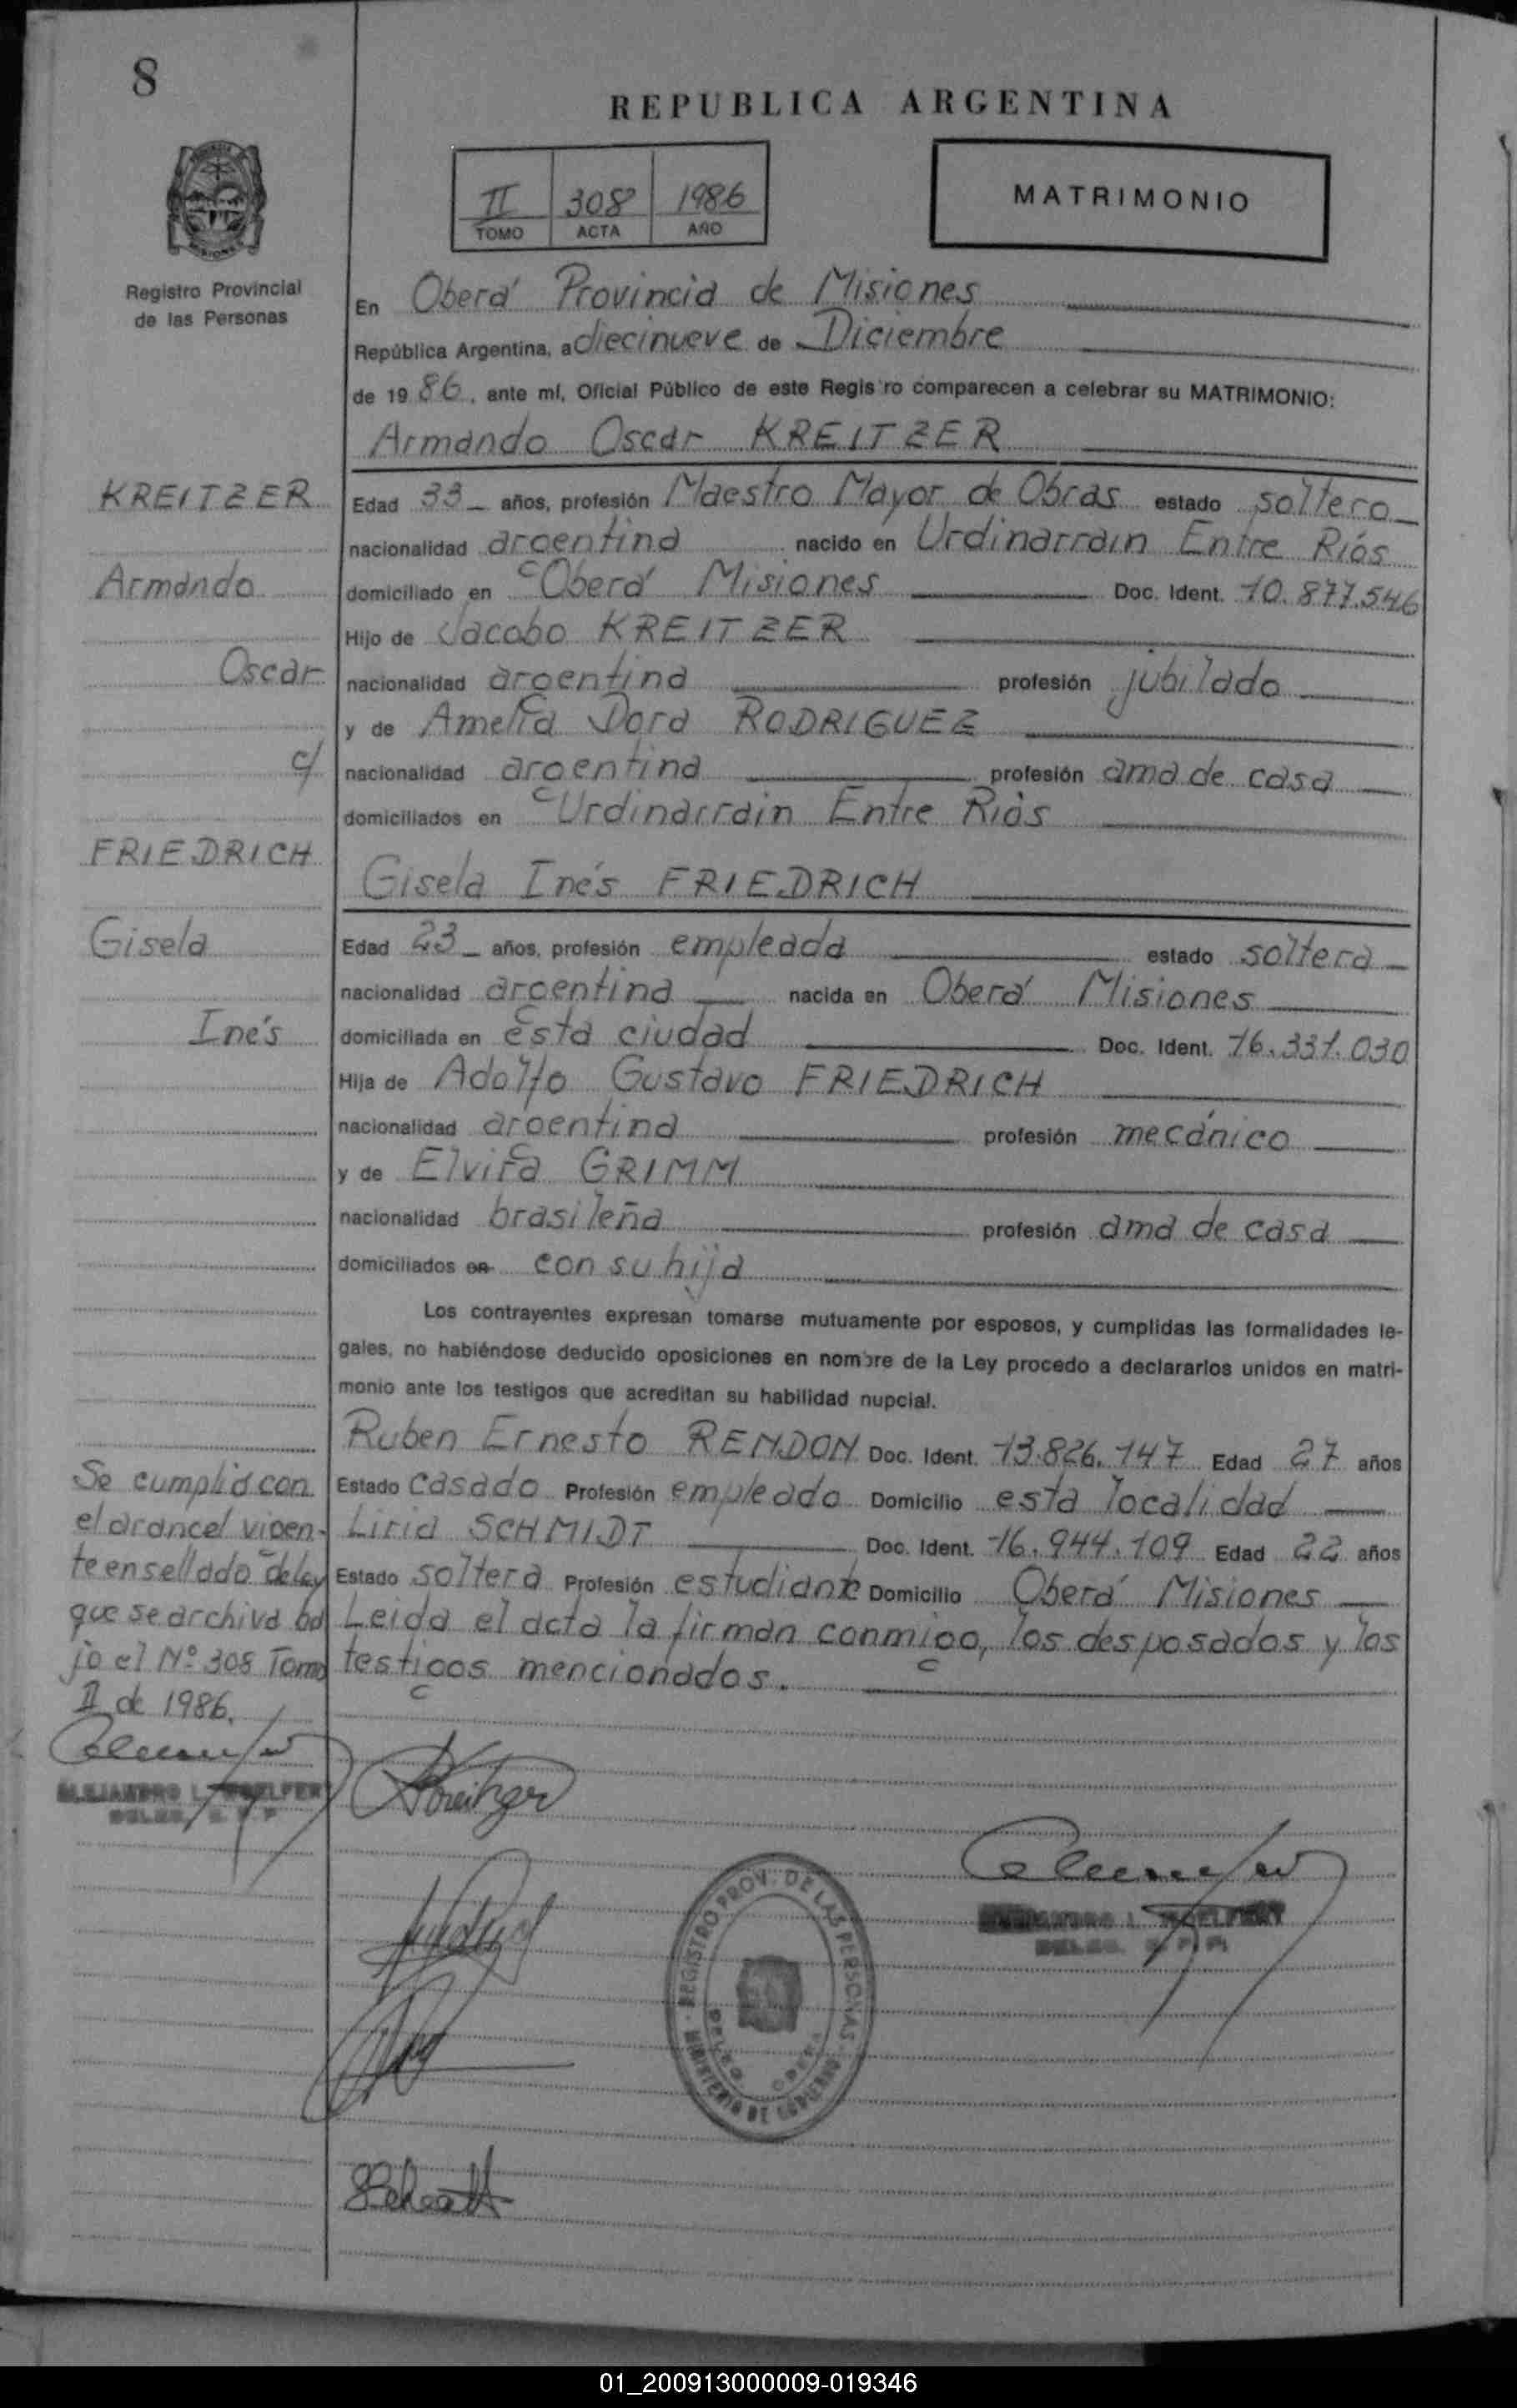 8
REPUBLICA ARGENTINA
II 308 1986
TOMO ACTA AÑO
MATRIMONIO
Registro Provincial
de las Personas
En Oberá Provincia de Misiones
República Argentina, a diecinueve de Diciembre
de 1986, ante mí, Oficial Público de este Registro comparecen a celebrar su MATRIMONIO:
Armando Oscar KREITZER
KREITZER
Armando
Oscar
c/
FRIEDRICH
Gisela
Inés
Edad 33 años, profesión Maestro Mayor de Obras estado soltero
nacionalidad argentina nacido en Urdinarrain Entre Ríos
domiciliado en Oberá Misiones Doc. Ident. 10.877.546
Hijo de Jacobo KREITZER
nacionalidad argentina profesión jubilado
y de Amelia Dora RODRIGUEZ
nacionalidad argentina profesión ama de casa
domiciliados en Urdinarrain Entre Ríos
Gisela Inés FRIEDRICH
Edad 23 años, profesión empleada estado soltera
nacionalidad argentina nacida en Oberá Misiones
domiciliada en esta ciudad Doc. Ident. 16.331.030
Hija de Adolfo Gustavo FRIEDRICH
nacionalidad argentina profesión mecánico
y de Elvira GRIMM
nacionalidad brasileña profesión ama de casa
domiciliados en con su hija
Los contrayentes expresan tomarse mutuamente por esposos, y cumplidas las formalidades le-
gales, no habiéndose deducido oposiciones en nombre de la Ley procedo a declararlos unidos en matri-
monio ante los testigos que acreditan su habilidad nupcial.
Ruben Ernesto RENDON Doc. Ident. 13.826.147 Edad 27 años
Estado casado Profesión empleado Domicilio esta localidad
Liria SCHMIDT Doc. Ident. 16.944.109 Edad 22 años
Estado soltera Profesión estudiante Domicilio Oberá Misiones
Leida el acta la firman conmigo, los desposados y los
testigos mencionados.
Se cumplió con
el arancel vigen-
te en sellado de ley
que se archiva ba
jo el Nº 308 Tomo
II de 1986.
Kreitzer
REGISTRO PROV. DE LAS PERSONAS
MINISTERIO DE GOBIERNO
01_200913000009-019346